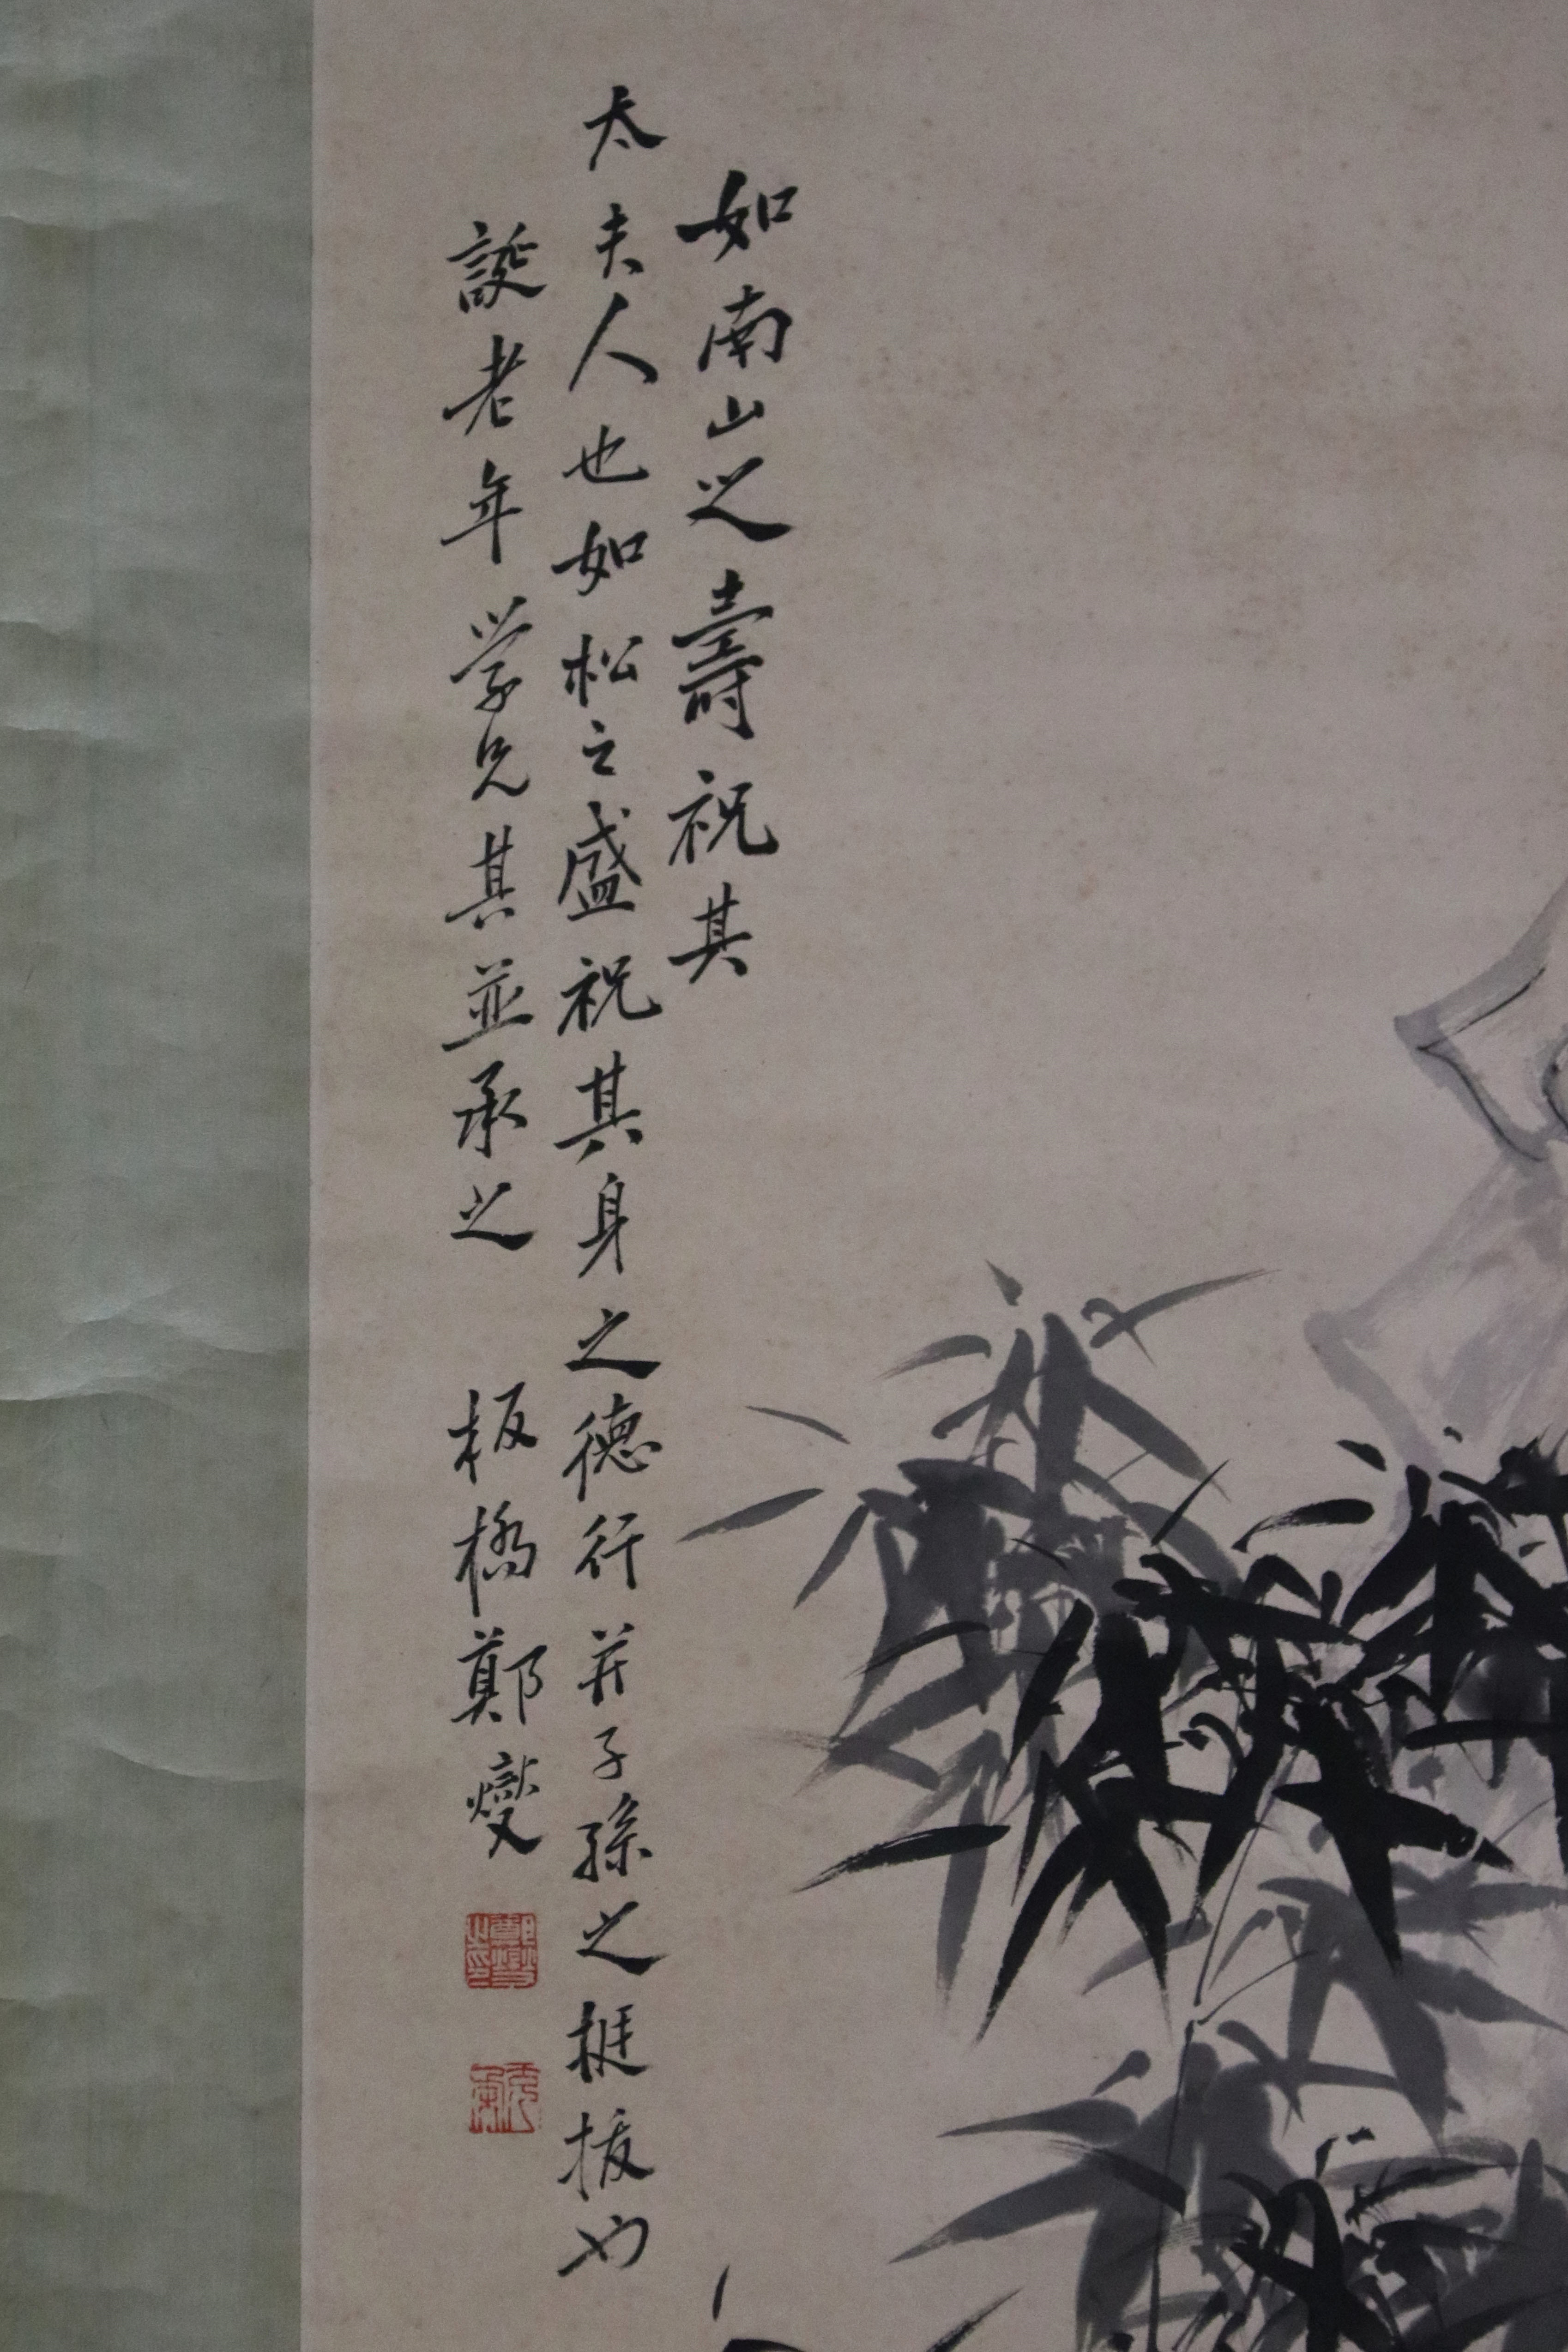 如南山之壽祝其
太夫人也如松之盛祝其身之德行并子孫之挺拔也
誕老年学兄其並承之
板橋鄭燮
鄭燮之印